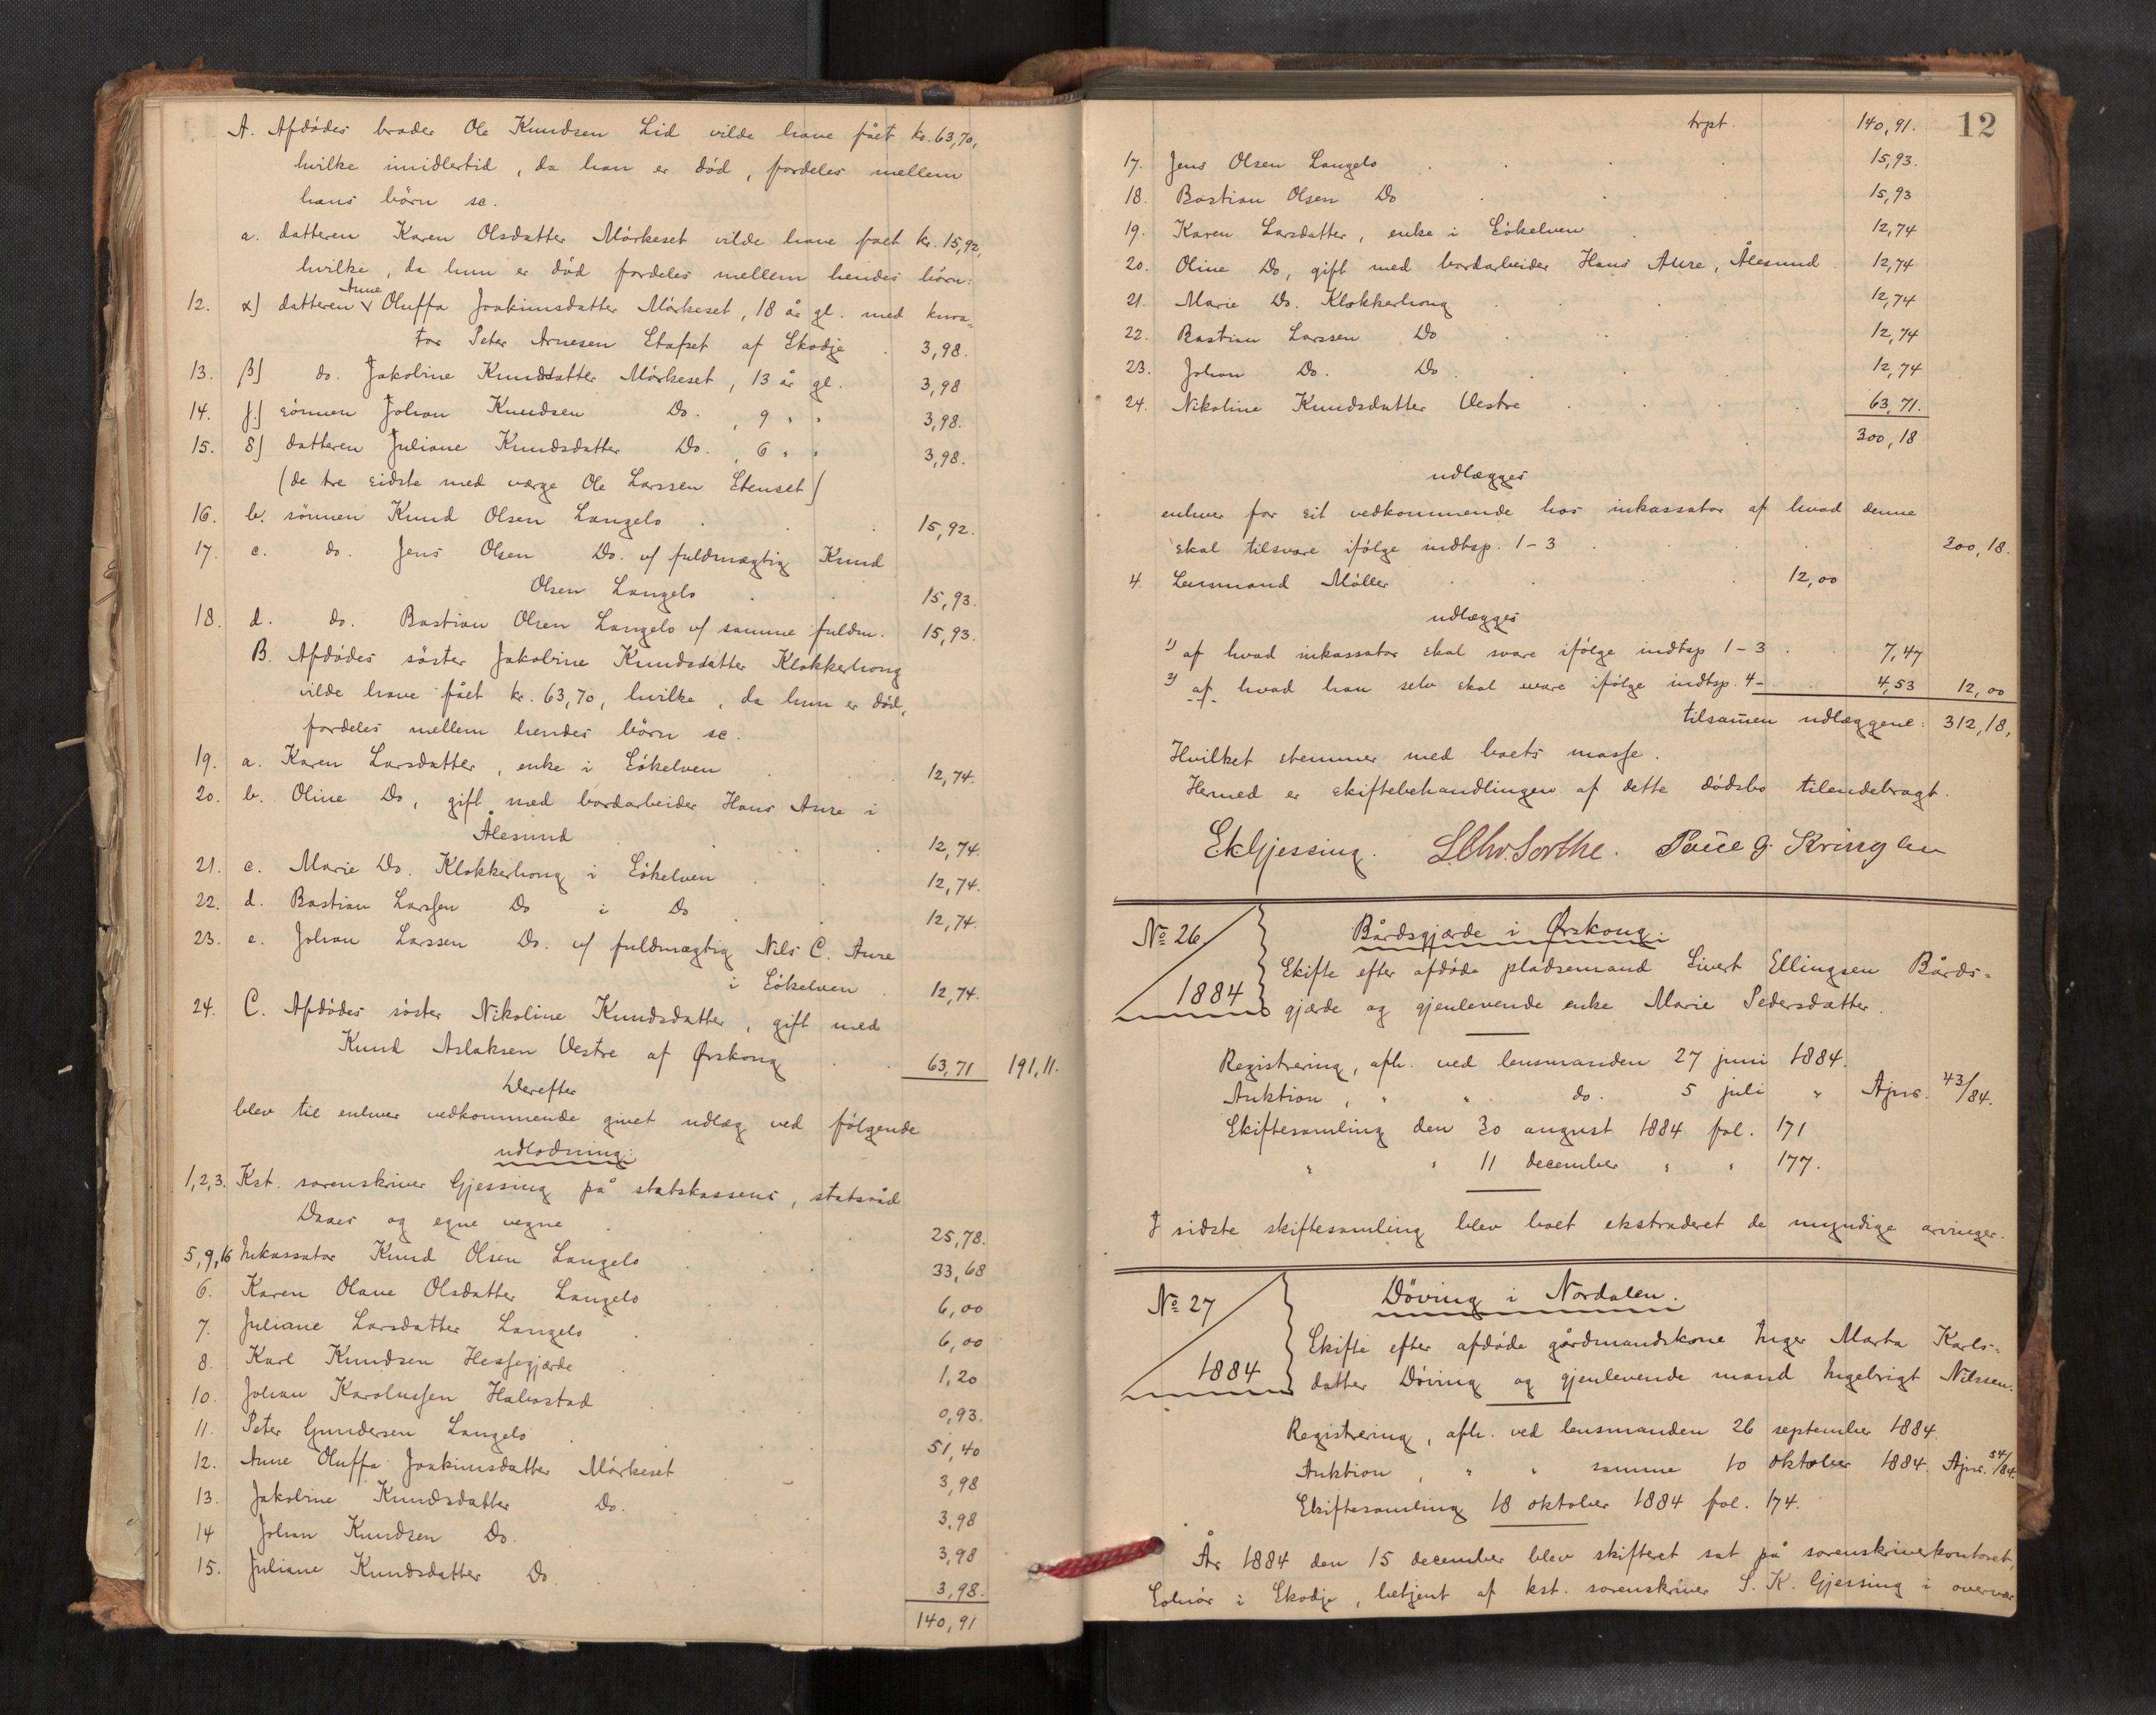 A. Afdödes broder Ole Knudsen Lid vilde have fået kr. 63,70,
hvilke imidlertid, da han er död, fordeles mellem
hans börn sc.
a. datteren Karen Olsdatter Mörkeset vilde have faet kr. 15,92,
hvilke, da hun er död fordeles mellem hendes börn:
12. α) datteren Anne Oluffa Joakimsdatter Mörkeset, 18 år gl. med kura-
tor Peter Arnesen Stafset af Skodje . 3,98.
13. β) do. Jakobine Knudsdatter Mörkeset, 13 år gl. 3,98
14. γ) sönnen Johan Knudsen Do. , 9 " " 3,98.
15. δ) datteren Juliane Knudsdatter Do. , 6 " " 3,98.
(de tre sidste med værge Ole Larssen Stenset)
16. b. sönnen Knud Olsen Langelo . . . 15,92.
17. c. do. Jens Olsen Do. v/ fuldmægtig Knud
Olsen Langelo . . 15,93.
18. d. do. Bastian Olsen Langelo v/ samme fuldm. 15,93.
B. Afdödes söster Jakobine Knudsdatter Klokkerhoug
vilde have fået kr. 63,70, hvilke, da hun er död,
fordeles mellem hendes börn sc.
19. a. Karen Larsdatter, enke i Sökelven . . . 12,74.
20. b. Oline Do, gift med bordarbeider Hans Aure i
Ålesund . . . 12,74.
21. c. Marie Do. Klokkerhoug i Sökelven . . 12,74.
22. d. Bastian Larssen Do i Do . . 12,74.
23. e. Johan Larssen Do. v/ fuldmægtig Nils C. Aure
i Sökelven . 12,74.
24. C. Afdödes söster Nikoline Knudsdatter, gift med
Knud Aslaksen Vestre af Ørskoug . . 63,71 191,11.
Derefter
blev til enhver vedkommende givet udlæg ved følgende
udlodning:
1,2,3. Kst. sorenskriver Gjessing på statskassens, statsråd
Daaes og egne vegne . . . 25,78.
5,9,16 Inkassator Knud Olsen Langelo . . . 33,68
6. Karen Olave Olsdatter Langelo . . . 6,00
7. Juliane Larsdatter Langelo . . . 6,00
8. Karl Knudsen Hessegjærde . . . 1,20
10. Johan Karolussen Halvstad . . . 0,93.
11. Peter Gundersen Langelo . . . 51,40
12. Anne Oluffa Joakimsdatter Mörkeset . . 3,98
13. Jakobine Knudsdatter Do. . . 3,98
14 Johan Knudsen Do. . . . 3,98
15. Juliane Knudsdatter Do. . . . 3,98.
140,91
12
trpt. 140,91.
17. Jens Olsen Langelo . . . . 15,93.
18. Bastian Olsen Do . . . 15,93
19. Karen Larsdatter, enke i Sökelven . . 12,74
20. Oline Do, gift med bordarbeider Hans Aure, Ålesund . 12,74
21. Marie Do. Klokkerhoug . . . 12,74
22. Bastian Larssen Do . . . 12,74
23. Johan Do. Do . . . 12,74
24. Nikoline Knudsdatter Vestre . . . 63,71.
300,18
udlægges
enhver for sit vedkommende hos inkassator af hvad denne
skal tilsvare ifölge indtsp. 1-3 . . . 300,18.
4. Lensmand Möller . . . 12,00
udlægges
1) af hvad inkassator skal svare ifölge indtsp 1-3 . 7,47
2) af hvad han selv skal svare ifölge indtsp. 4- . 4,53 12,00
tilsam̅en udlæggene: 312,18,
Hvilket stemmer med boets masse.
Hermed er skiftebehandlingen af dette dödsbo tilendebragt.
SKGjessing. L Chr. Sorthe. Paul G. Kringlen
No 26 / 1884
Bårdsgjærde i Ørskoug.
Skifte efter afdöde pladsemand Sivert Ellingsen Bårds-
gjærde og gjenlevende enke Marie Pedersdatter.
Registrering, afh. ved lensmanden 27 juni 1884.
Auktion, " " do. 5 juli " Ajns. 43/84.
Skiftesamling den 30 august 1884 fol. 171
" " 11 december " " 177.
I sidste skiftesamling blev boet ekstraderet de myndige arvinger.
No 27 / 1884
Döving i Nordalen.
Skifte efter afdöde gårdmandskone Inger Marta Karls-
datter Döving og gjenlevende mand Ingebrigt Nilssen.
Registrering, afh. ved lensmanden 26 september 1884.
Auktion, " " samme 10 oktober 1884. Ajns. 54/84.
Skiftesamling 18 oktober 1884 fol. 174.
År 1884 den 15 december blev skifteret sat på sorenskriverkontoret,
Solnör i Skodje, betjent af kst. sorenskriver S. K. Gjessing i overvær